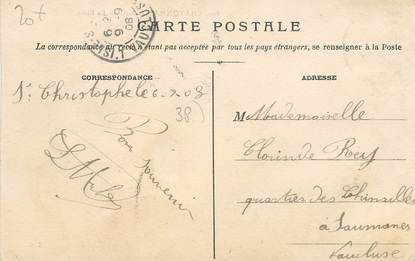 20+
CARTE POSTALE
La correspondance au recto n'étant pas acceptée par tous les pays étrangers, se renseigner à la Poste
CORRESPONDANCE
ADRESSE
St Christophe le 6-7-08
38)
Bon souvenir
M Mademoiselle
Clorinde Rey
quartier des
à Saumanes
Vaucluse